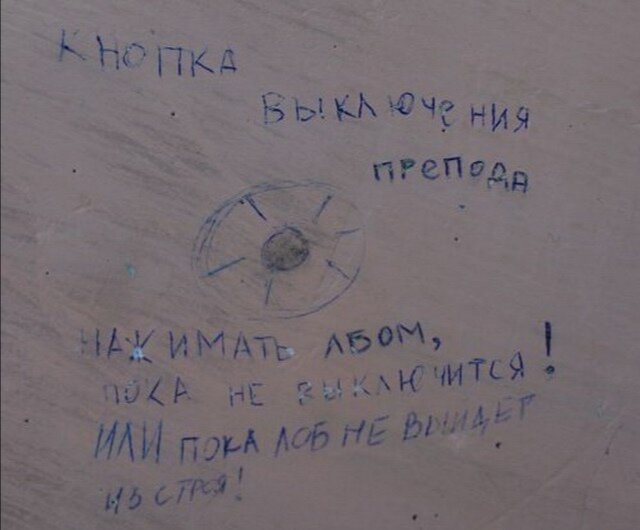 КНОПКА
ВЫКЛЮЧЕНИЯ
ПРЕПОДА
НАЖИМАТЬ ЛБОМ,
ПОКА НЕ ВЫКЛЮЧИТСЯ!
ИЛИ ПОКА ЛОБ НЕ ВЫЙДЕТ
ИЗ СТРОЯ!